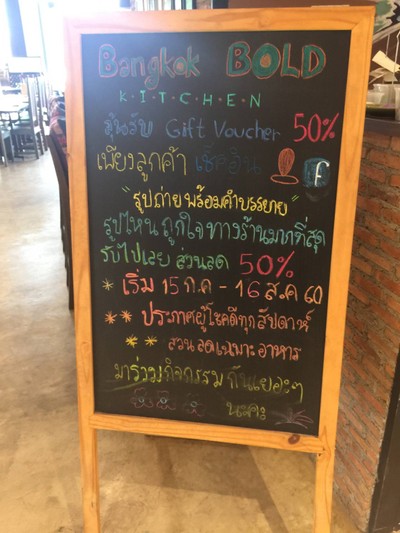 Bangkok BOLD
KITCHEN
ลุ้นรับ Gift Voucher 50%
เพียงลูกค้า เช็คอิน f
"รูปถ่าย พร้อมคำบรรยาย"
รูปไหน ถูกใจ ทางร้านมากที่สุด
รับไปเลย ส่วนลด 50%
* เริ่ม 15 ก.ค - 16 ส.ค 60
** ประกาศผู้โชคดีทุกสัปดาห์
** ส่วนลดเฉพาะอาหาร
มาร่วมกิจกรรม กันเยอะๆ
นะคะ